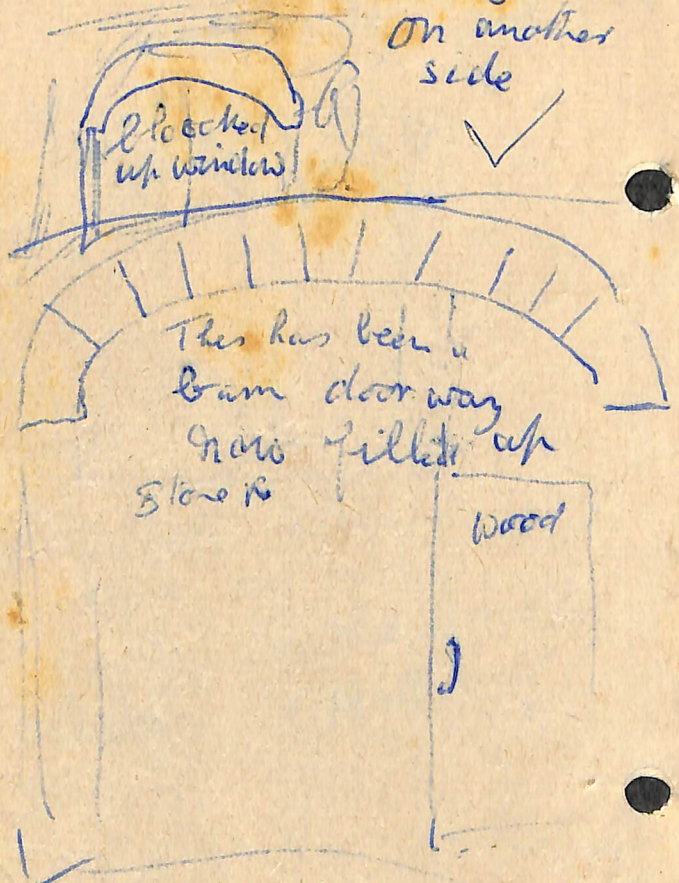 on another
side
bloocked
up window
This has been a
barn door way
now filled up
Stone
wood